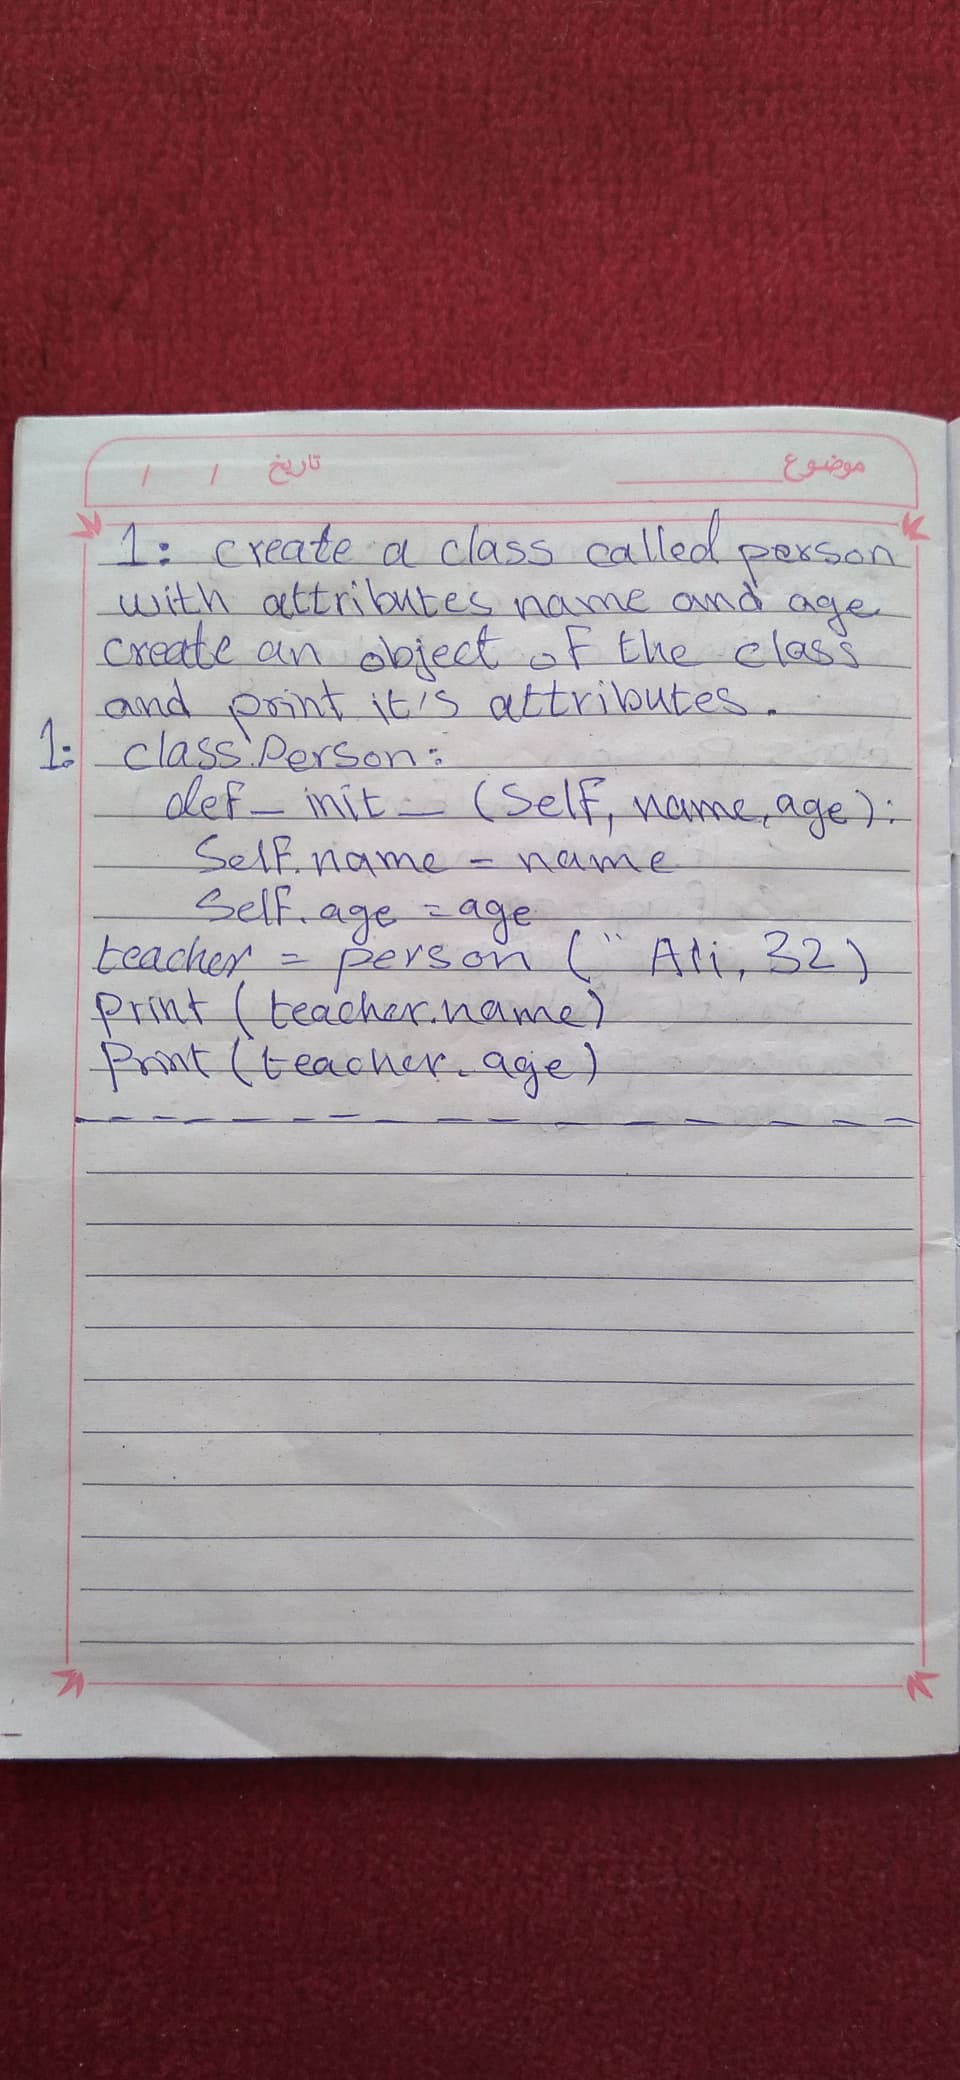 موضوع تاریخ / /
1: create a class called person
with attributes name and age
create an object of the class
and print it's attributes.
1: class Person:
def _ init _ (Self, name, age):
Self.name = name
Self.age = age
teacher = person ( " Ali, 32 )
print (teacher.name)
Print (teacher.age)